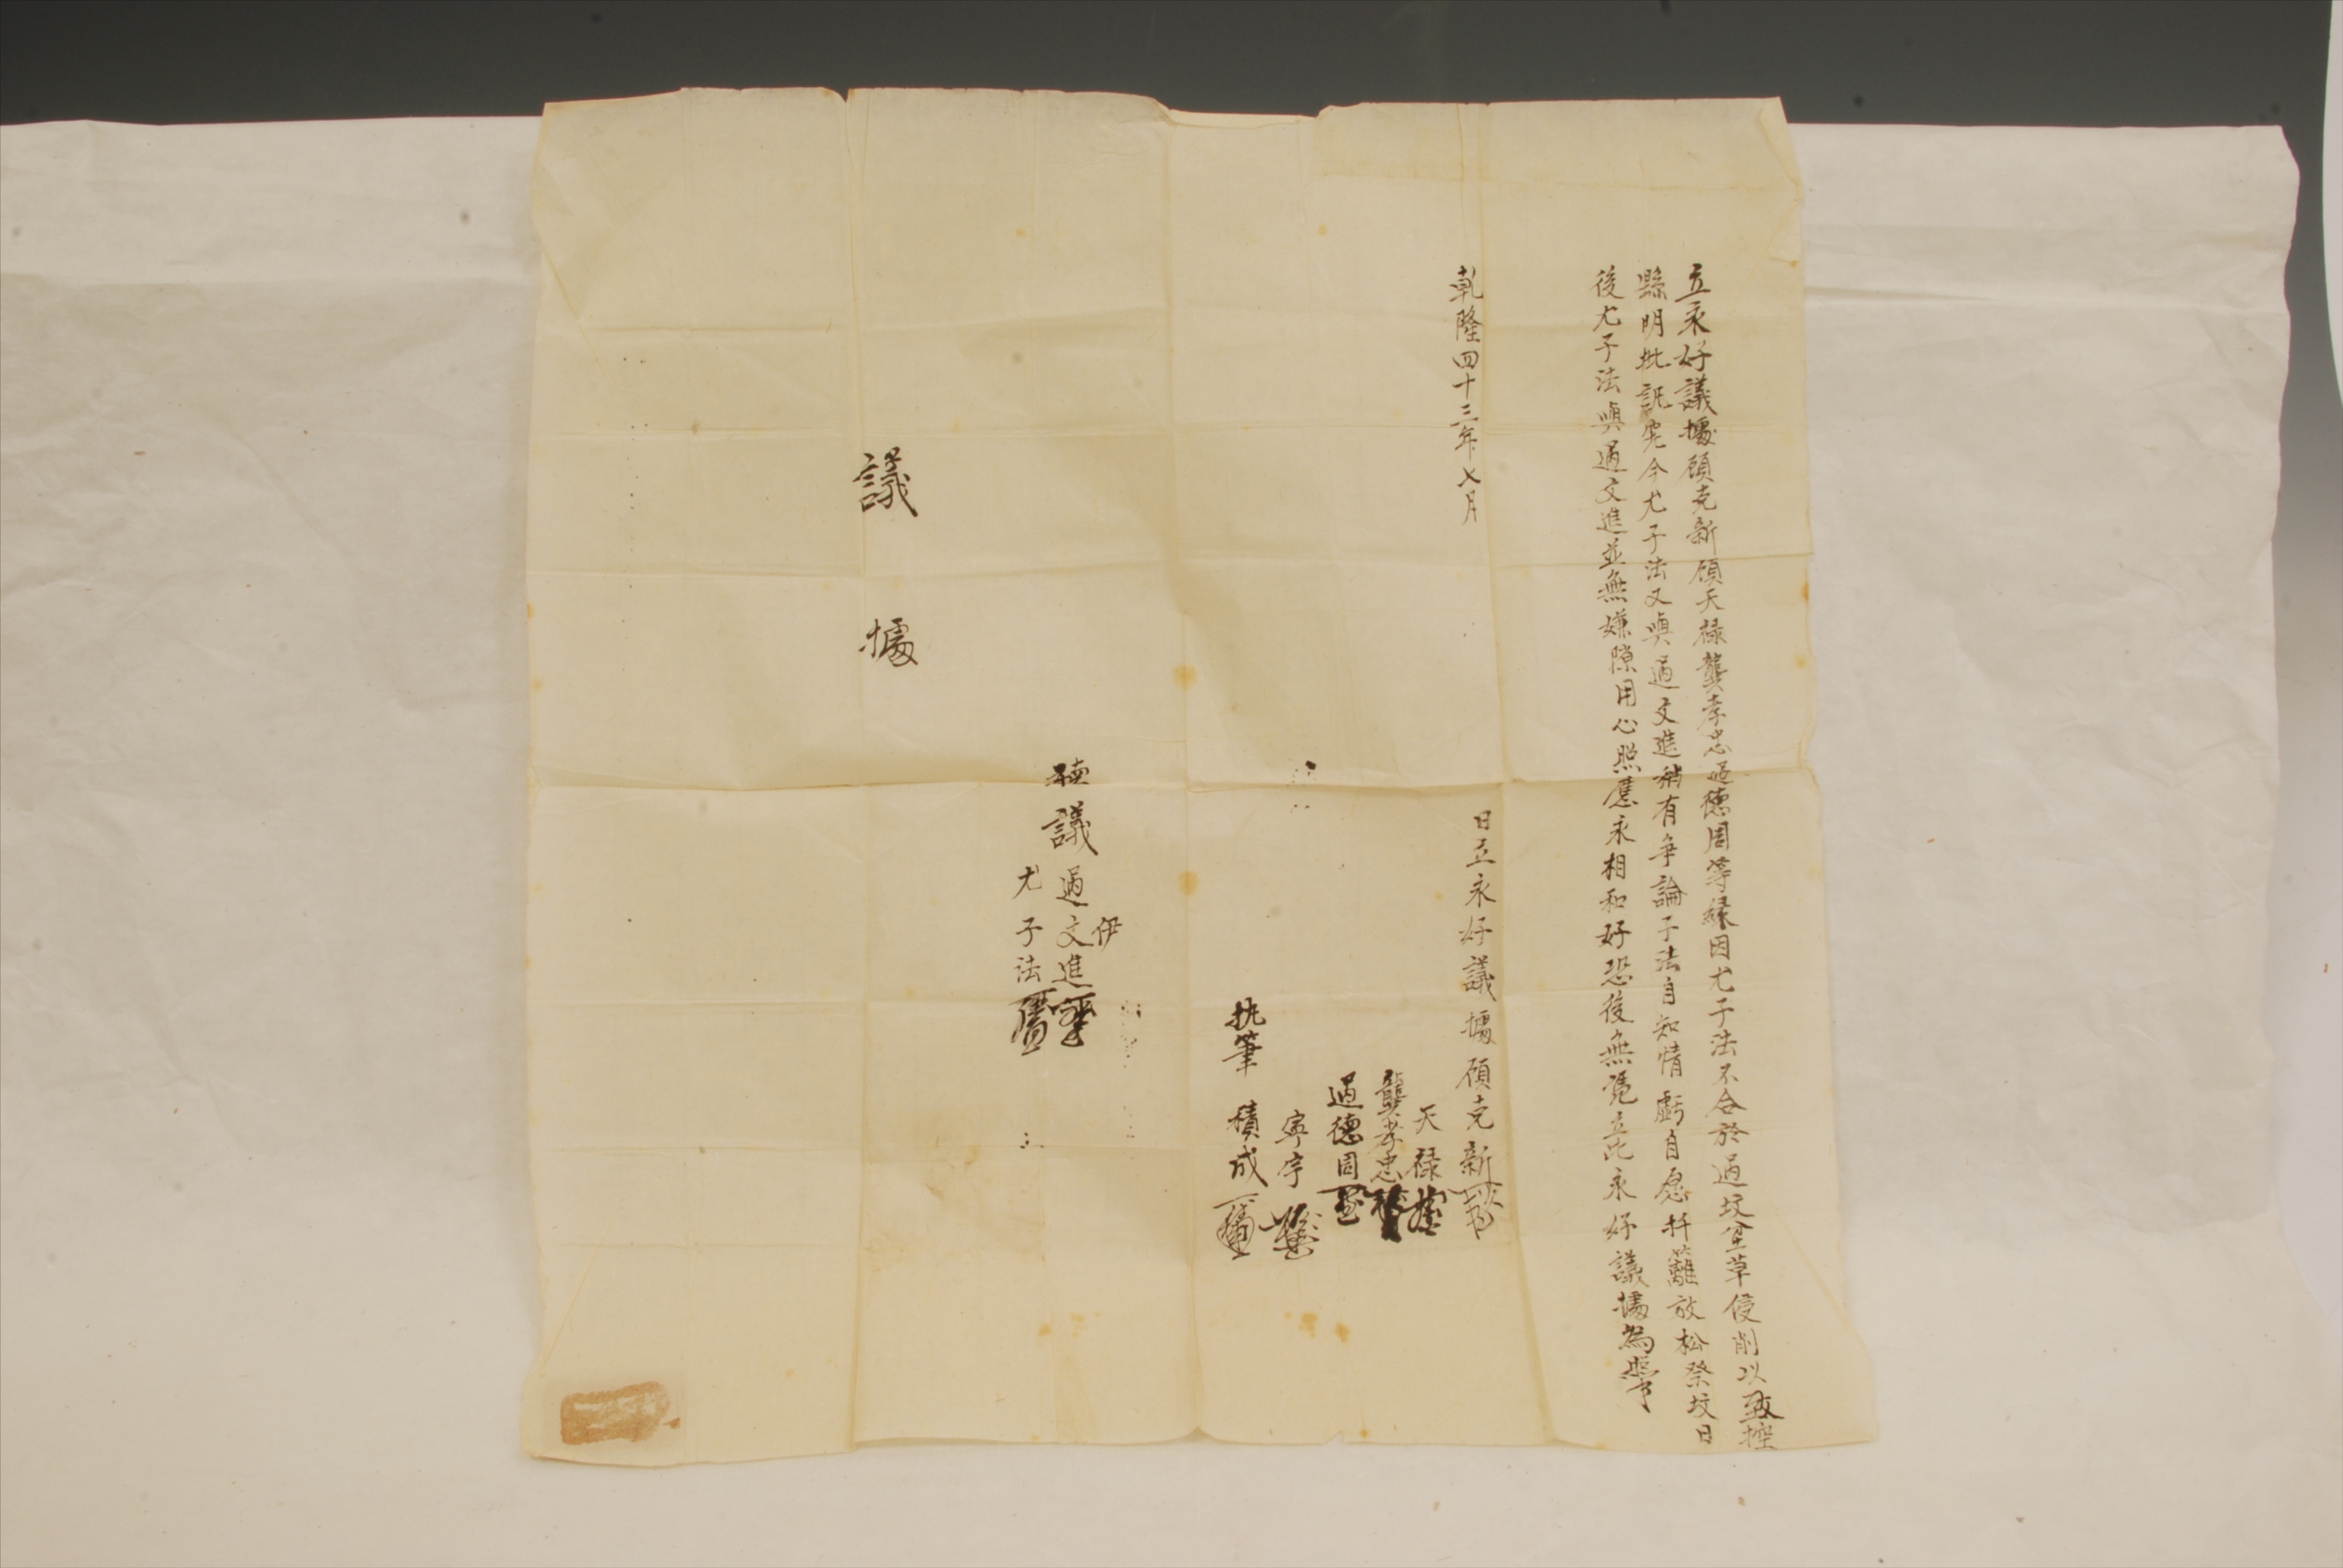 立永好議據顧克新顧天祿龔孝忠過德周等緣因尤子法不合於過坟堂草侵削以致控
縣明批訊究今尤子法又與過文進稍有爭論子法自知情虧自愿扦籬放松祭坟日
後尤子法與過文進並無嫌隙用心照應永相和好恐後無凴立此永好議據為照
乾隆四十三年七月 日立永好議據顧克新
天祿
龔孝忠
過德周
寧宇
执筆 積成
伊
聽議 過文進
尤子法
議據